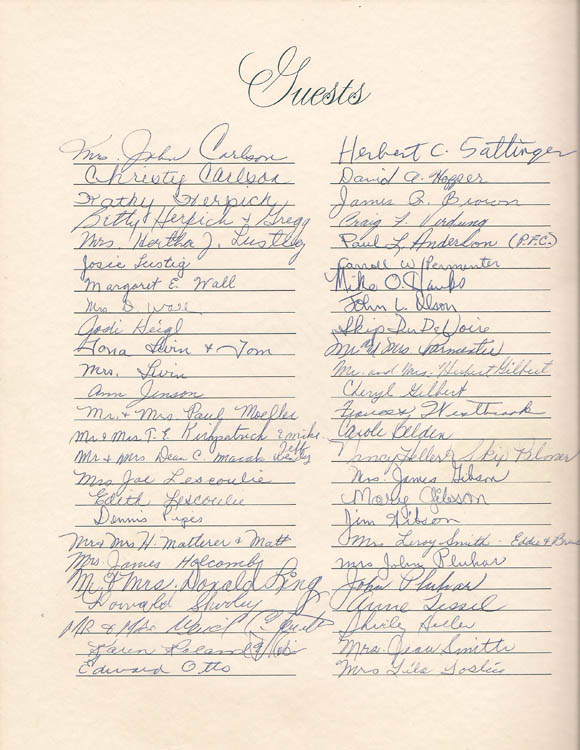 Guests
Mrs. John Carlson
Christy Carlson
Kathy Herpich
Betty Herpich & Gregg
Mrs. Hertha J. Lustig
Josie Lustig
Margaret E. Wall
Mrs D. Wall
Jodi Heigl
Mrs.
Ann Jenson
Mr. & Mrs. Paul Moeller
Mr & Mrs T. E. Kirkpatrick & Mike
Mr & Mrs Dean C. Jeff
Mrs Joe Lescoulie
Edith Lescoulie
Dennis Pipes
Mr & Mrs H. Matterer & Matt
Mrs. James Holcomb
Mr & Mrs. Donald Ling
Donald Shirley
Mr & Mrs
Karen
Edward Otto
Herbert C. Sattinger
David A. Hopper
James R. Brown
Craig F. Verdung
Paul L. Anderson (P.F.C.)
Carroll W Permenter
Mike O. Hanks
John L. Olson
Skip DuDeVoire
Mr & Mrs. Parmenter
Mr. and Mrs. Herbert Gilbert
Cheryl Gilbert
Frances Westbrook
Carole Belden
Skip
Mrs. James Gibson
Mary Gibson
Jim Gibson
Mrs Leroy Smith - Eddie &
Mrs John Pluhar
John Pluhar
Anne Tessel
Shirley Heller
Mrs. Jean Smith
Mrs Lila